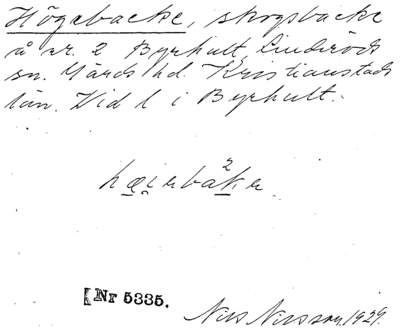 Högabacke, skogsbacke
å nr. 2 Byrhult, Linderöds
sn. Gärds hd. Kristianstads
län. Vid l i Byrhult.
2
hæi̯ərbakər
[Nr 5335.
Nils Nilsson, 1929.